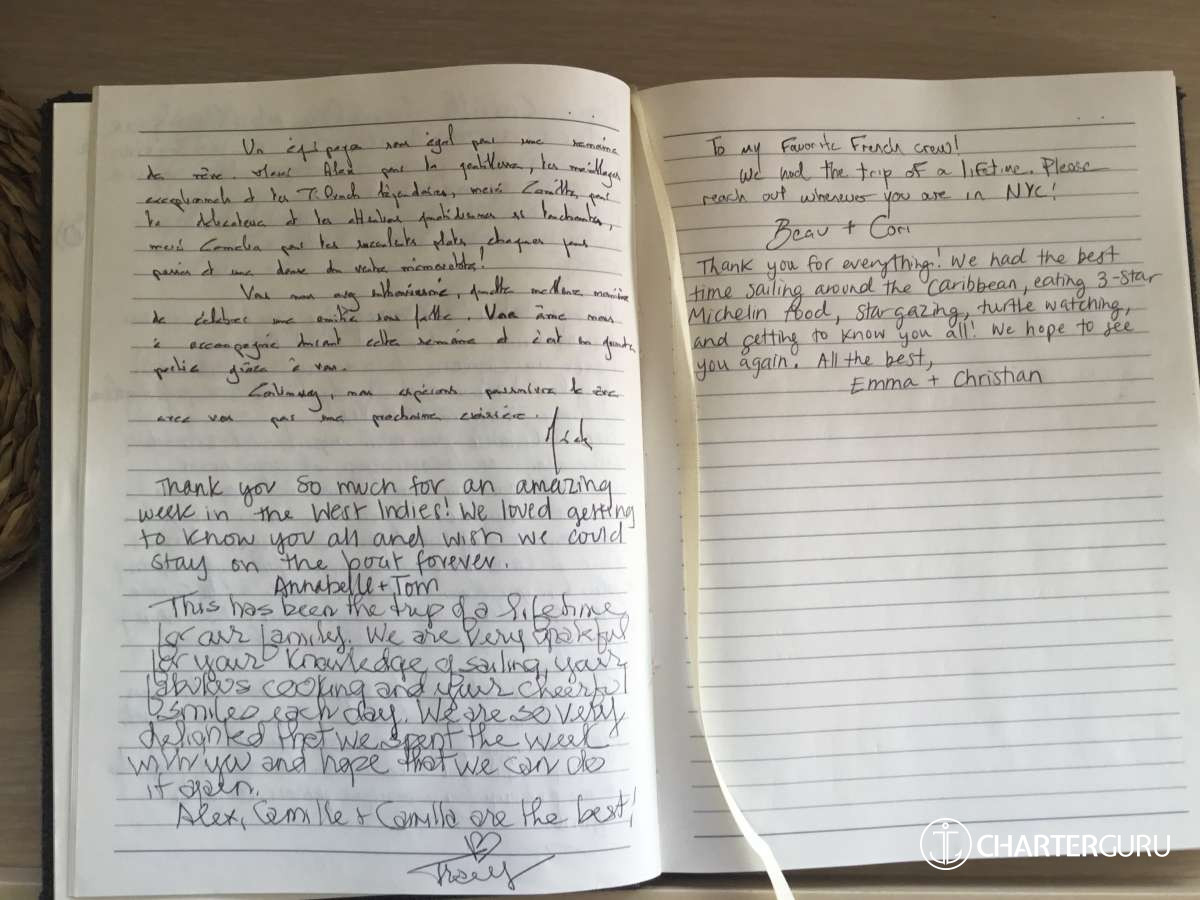 Un équipage sans égal pour une semaine
de rêve. Merci Alex pour la gentillesse, les mouillages
exceptionnels et les Ti Punch légendaires, merci Camille, pour
la délicatesse et les attentions quotidiennes et
merci Camelia pour les succulents plats chaques jours
et une danse du ventre mémorable!
Vous nous avez, quelle meilleure manière
de célébrer une amitié sans faille. Votre âme nous
a accompagné durant cette semaine et c'est en grande
partie grâce à vous.
Continuez, nous espérons
avec vous pour une prochaine croisière.
Thank you so much for an amazing
week in the West Indies! We loved getting
to know you all and wish we could
stay on the boat forever.
Annabelle + Tom
This has been the trip of a lifetime
for our families. We are very grateful
for your knowledge of sailing, your
fabulous cooking and your cheerful
smiles each day. We are so very
delighted that we spent the week
with you and hope that we can do
it again.
Alex, Camille + Camilla are the best!
Tracy
To my Favorite French crew!
We had the trip of a lifetime. Please
reach out whenever you are in NYC!
Beau + Cori
Thank you for everything! We had the best
time sailing around the Caribbean, eating 3-star
Michelin food, stargazing, turtle watching,
and getting to know you all! We hope to see
you again. All the best,
Emma + Christian
CHARTERGURU